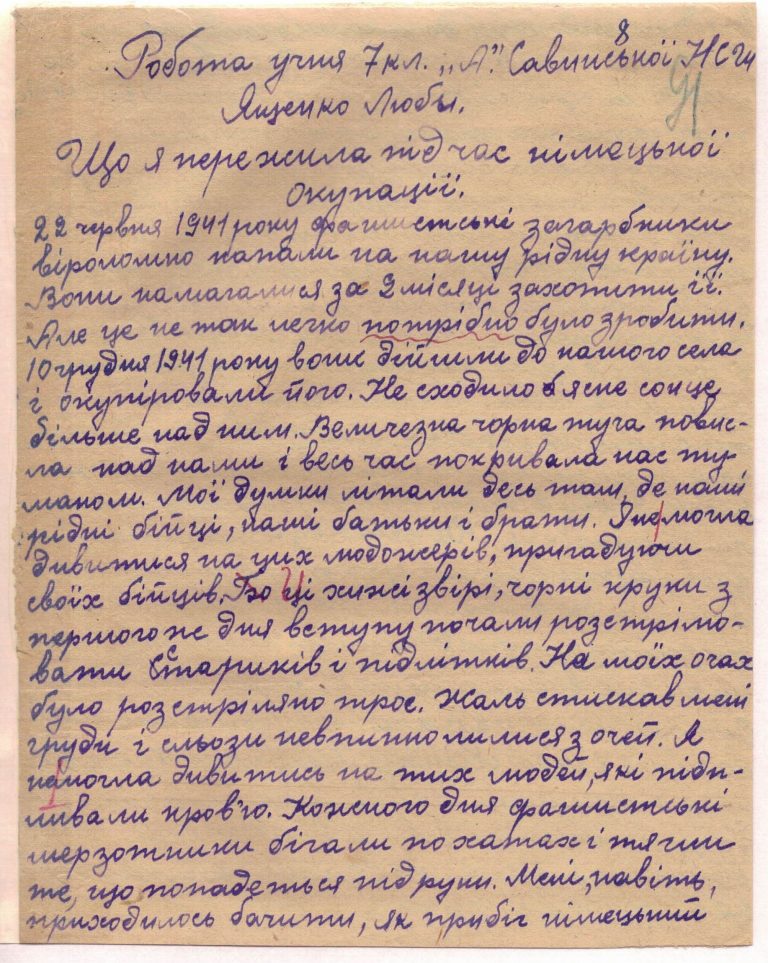 8
Робота учня 7 кл. „А". Савинської НСШ
91
Ященко Люби.
Що я пережила під час німецької
окупації.
22 червня 1941 року фашистські загарбники
віроломно напали на нашу рідну країну.
Вони намагалися за 2 місяці захопити її.
Але це не так легко потрібно було зробити.
10 грудня 1941 року вони дійшли до нашого села
і окупіровали його. Не сходило ясне сонце
більше над ним. Величезна чорна туча повис-
ла над нами і весь час покривала нас ту-
маном. Мої думки літали десь там, де наші
рідні бійці, наші батьки і брати. Я не могла
дивитися на цих людожерів, пригадуючи
своїх бійців. Бо ці хижі звірі, чорні круки з
першого ж дня вступу почали розстрілю-
вати стариків і підлітків. На моїх очах
було розстріляно троє. Жаль стискав мені
груди і сльози невпинно лилися з очей. Я
немогла дивитись на тих людей, які підп-
ливали кров'ю. Кожного дня фашистські
мерзотники бігали по хатах і тягли
те, що попадеться під руки. Мені, навіть,
приходилось бачити, як прибіг німецький